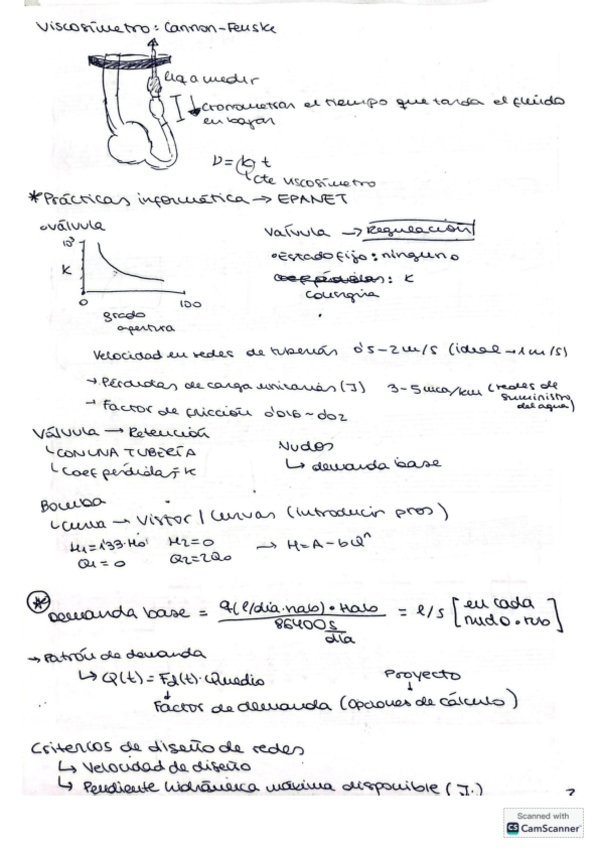 Viscosímetro: Cannon-Fenske
liq a medir
cronometrar el tiempo que tarda el fluido
en bajar
ν = (k) t
cte viscosímetro
*Prácticas informática → EPANET
válvula
10³
K
0
100
grado
apertura
Válvula → Regulación
•Estado fijo: ninguno
: K
consigna
Velocidad en redes de tuberías 0'5-2 m/s (ideal → 1 m/s)
→ Pérdidas de carga unitarias (J) 3-5 mca/km (redes de
suministro
del agua)
→ Factor de fricción 0'016-0'02
Válvula → Retención
↳ CON UNA TUBERÍA
↳ Coef pérdida, K
Nudos
↳ demanda base
Bomba
↳ Curva → Visor / Curvas (introducir pros)
H1=1'33·Ho H2=0 → H=A-bQⁿ
Q1=0 Q2=2Qo
* Demanda base = q(l/día·hab)·Hab / 86400 s/día = l/s [en cada nudo]
→ Patrón de demanda
↳ Q(t) = Fd(t)·Qmedio
Proyecto
Factor de demanda (opciones de cálculo)
Criterios de diseño de redes
↳ Velocidad de diseño
↳ Pendiente hidráulica máxima disponible (J.)
Scanned with
CS CamScanner